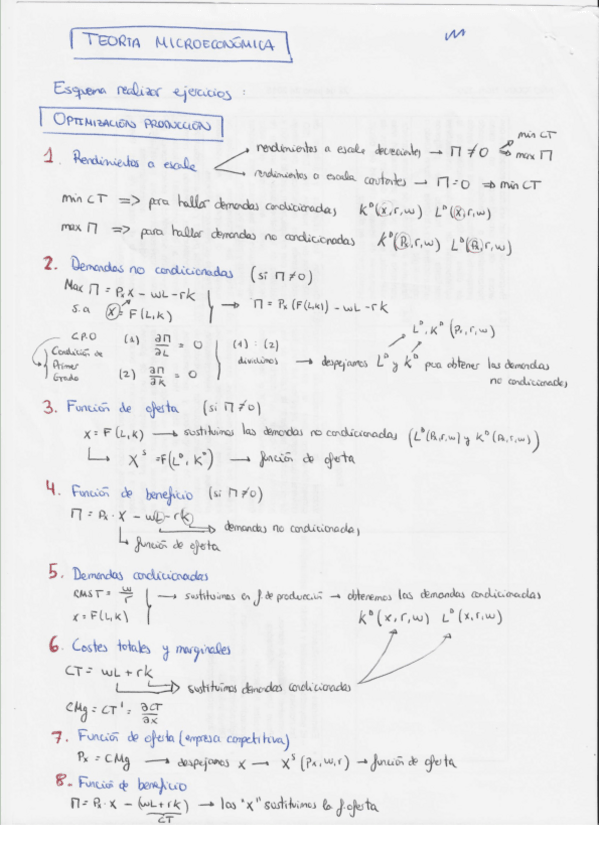 TEORIA MICROECONÓMICA
Esquema realizar ejercicios :
OPTIMIZACION PRODUCCIÓN
1. Rendimientos a escala
rendimientos a escala decreciantes → Π ≠ 0
min CT
max Π
rendimientos a escala constantes → Π = 0 ⇒ min CT
min CT ⇒ para hallar demandas condicionadas K^D(x,r,w) L^D(x,r,w)
max Π ⇒ para hallar demandas no condicionadas K^D(Px,r,w) L^D(Px,r,w)
2. Demandas no condicionadas (si Π≠0)
Max Π = Px X - wL - rk
s.a X = F(L,K)
→ Π = Px (F(L,K)) - wL - rk
C.P.O
Condición de
Primer
Grado
(1) ∂Π/∂L = 0
(2) ∂Π/∂K = 0
(1) : (2)
dividimos
→ despejamos L^D y K^D para obtener las demandas
no condicionadas
L^D, K^D (Px,r,w)
3. Función de oferta (si Π≠0)
X = F(L,K) → sustituimos las demandas no condicionadas (L^D(Px,r,w) y K^D(Px,r,w))
X^s = F(L^D, K^D) → función de oferta
4. Función de beneficio (si Π≠0)
Π = Px · X - wL - rk
demandas no condicionadas
función de oferta
5. Demandas condicionadas
RMST = w/r
x = F(L,K)
→ sustituimos en f. de producción → obtenemos las demandas condicionadas
K^D(x,r,w) L^D(x,r,w)
6. Costes totales y marginales
CT = wL + rk
sustituimos demandas condicionadas
CMg = CT' = ∂CT/∂x
7. Función de oferta (empresa competitiva)
Px = CMg → despejamos X → X^s (Px,w,r) → función de oferta
8. Función de beneficio
Π = Px · X - (wL + rk) → las "X" sustituimos la f. oferta
CT